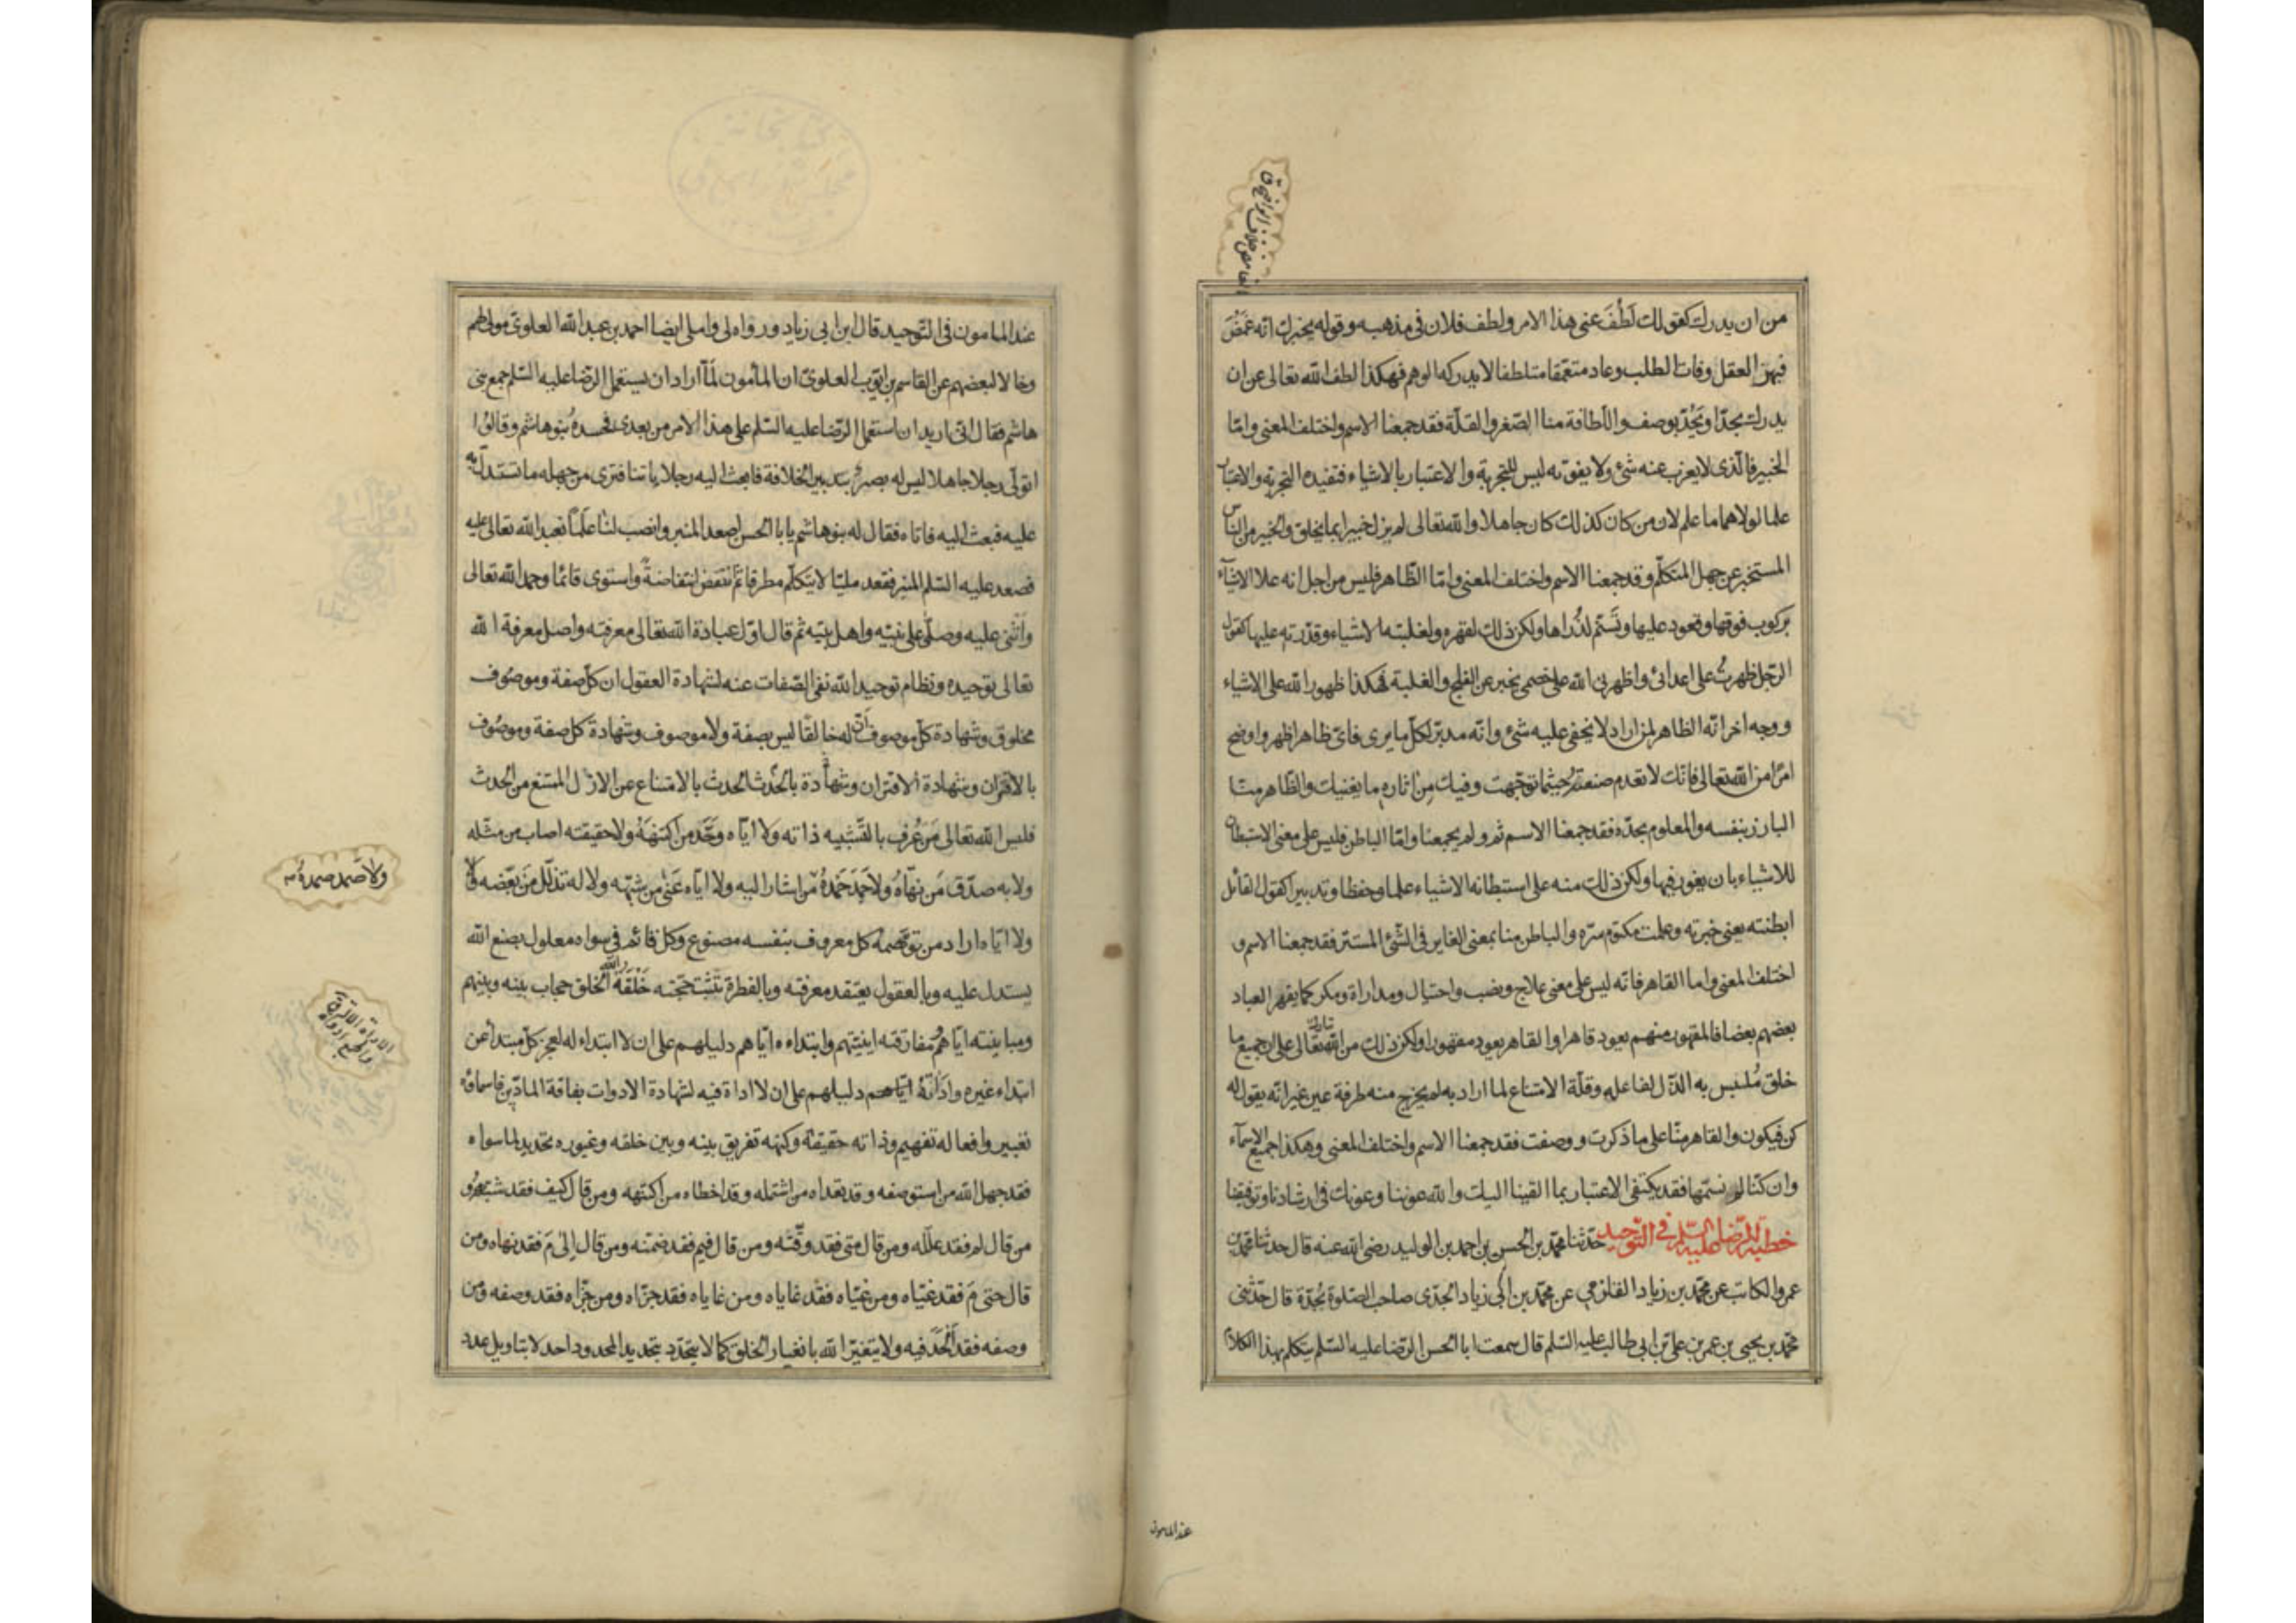 من ان يدرك كقولك لَطُفَ عنى هذا الامر ولطف فلان فى مذهبه وقوله يخبرك انه غَمُضَ
فبهر العقل وفات الطلب وعاد متعمّقا متلطفا لا يدركه الوهم فهكذا لطف الله تعالى عن ان
يدرك بحدّ او يُحَدّ بوصف واللّطافة منا الصّغر والقلّة فقد جمعنا الاسم واختلف المعنى وامّا
الخبير فالّذى لا يعزب عنه شئ ولا يفوته ليس للتجربة والاعتبار بالاشياء فتفيده التجربة والاعتبار
علما لولاهما ما علم لان من كان كذلك كان جاهلا والله تعالى لم يزل خبيرا بما يخلق والخبير من الناس
المستخبر عن جهل المتكلّم وقد جمعنا الاسم واختلف المعنى وامّا الظّاهر فليس من اجل انه علا الاشيآء
بركوب فوقها وقعود عليها وتَسَنّم لذُراها ولكن ذلك لقهره ولغلبته الاشياء وقدرته عليها كقول
الرّجل ظهرتُ على اعدائى واظهرنى الله على خصمى يخبر عن الفلج والغلبة فهكذا ظهور الله على الاشياء
ووجه اخر انّه الظاهر لمن اراد لا يخفى عليه شئ وانّه مدبّر لكلّ ما يرى فاىّ ظاهر اظهر واوضح
امرًا من الله تعالى فانّك لا تعدم صنعته حيثما توجّهت وفيك مِن اثاره ما يغنيك والظّاهر منّا
البارز بنفسه والمعلوم بحدّه فقد جمعنا الاسم ثم ولم يجمعنا وامّا الباطن فليس على معنى الاستبطان
للاشياء بان يغور فيها ولكن ذلك منه على استبطانه الاشياء علما وحفظا وتدبيرا كقول القائل
ابطنته يعنى خبرته وعلمت مكتوم سرّه والباطن منا بمعنى الغاير فى الشّئ المستتر فقد جمعنا الاسم و
اختلف المعنى واما القاهر فانّه ليس على معنى علاج ونصب واحتيال ومداراة ومكر كما يقهر العباد
بعضهم بعضا فالمقهور منهم يعود قاهرا والقاهر يعود مقهورا ولكن ذلك من الله تعالى على ان جميع ما
خلق مُلتبس به الذّل لفاعله وقلّة الامتناع لما اراد به لم يخرج منه طرفة عين غير انّه يقول له
كن فيكون والقاهر منّا على ما ذكرت ووصفت فقد جمعنا الاسم واختلف المعنى وهكذا جميع الاسمآء
وان كنّا لم نسمّها فقد يكتفى الاعتبار بما القينا اليك والله عوننا وعونك فى ارشادنا وتوفيقنا
خطبة الرّضا عليه السّلم فى التّوحيد حدّثنا محمّد بن الحسن بن احمد بن الوليد رضى الله عنه قال حدثنا محمّد بن
عمرو الكاتب عن محمّد بن زياد القلزمي عن محمّد بن ابى زياد الجدّى صاحب الصّلوة بجُدّة قال حدّثنى
محمّد بن يحيى بن عمر بن على بن ابى طالب عليه السّلم قال سمعت ابا الحسن الرّضا عليه السّلم يتكلم بهذا الكلام
عند المامون
عند المامون فى التّوحيد قال ابن ابى زياد ورواه لى واملى ايضا احمد بن عبد الله العلوىّ مولى لهم
وخالا لبعضهم عن القاسم بن ايّوب العلوىّ ان المأمون لمّا اراد ان يستعمل الرّضا عليه السّلم جمع بنى
هاشم فقال انّى اريد ان استعمل الرّضا عليه السّلم على هذا الامر من بعدى فحسده بنو هاشم وقالوُا
اتولّى رجلا جاهلا ليس له بصر بتدبير الخلافة فابعث اليه رجلا ياتنا فترى من جهله ما تستدلّ به
عليه فبعث اليه فاتاه فقال له بنو هاشم يا با الحسن اصعد المنبر وانصب لنا عَلَماً نعبد الله تعالى عليه
فصعد عليه السّلم المنبر فقعد مليّا لا يتكلّم مطرقا ثمّ انتفض انتفاضةً واستوى قائما وحمد الله تعالى
واثْنى عليه وصلّى على نبيّه واهل بيته ثم قال اوّل عبادة الله تعالى معرفته واصل معرفة الله
تعالى توحيده ونظام توحيد الله نفى الصّفات عنه لشهادة العقول ان كلّ صفة وموصوف
مخلوق وشهادة كلّ موصوف انّ له خالقًا ليس بصفة ولا موصوف وشهادة كلّ صفة وموصُوف
بالاقتران وشهادة الاقتران وشهادة بالحَدث الحدث بالامتناع عن الازل الممتنع من الحدث
فليس الله تعالى مَن عُرف بالتّشبيه ذاته ولا ايّاه وحّد من اكتنهَهُ ولا حقيقته اصاب من مثّله
ولا به صدّق مَن نهّاهُ ولا صَمَدَ صَمْدَهُ من اشار اليه ولا ايّاه عَنٰى من شبّهه ولا له تذلّل من بعّضه
ولا صَمد صمدهُ
ولا ايّاه اراد من توهّمه كل معروف بنفسه مصنوع وكل قائم فى سواه معلول بصنع الله
يستدل عليه وبالعقول يعتقد معرفته وبالفطرة تثبت حجّته خَلْقَة الله الخلق حجاب بينه وبينهم
ومباينته ايّاهم مُفارقته اينيّتهم وابتداءه ايّاهم دليلهم على ان لا ابتداء له لعجز كلّ مبتدأ عن
ابتداء غيره وادَاتُهُ ايّاهم دليلهم على ان لا اداة فيه لشهادة الادوات بفاقة المادّين فاسماؤه
تعبير وافعاله تفهيم وذاته حقيقة وكنهه تفريق بينه وبين خلقه وغيوره تحديد لما سواه
فقد جهل الله من استوصفه وقد تعداه من اشتمله وقد اخطاه من اكتنهه ومن قال كيف فقد شبّهه و
من قال لم فقد علّله ومن قال متى فقد وقّته ومن قال فيم فقد ضمّنه ومن قال اِلىٰ مَ فقد نهاه ومن
قال حتى مَ فقد غيّاه ومن غيّاه فقد غاياه ومن غاياه فقد جزّاه ومن جزّاه فقد وصفه ومن
وصفه فقد اَلْحَدَ فيه ولا يتغيّر الله بانغيار الخلق كما لا يتحدّد بتحديد المحدود احد لا بتاويل عدد